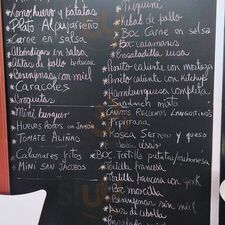 Lomo, huevo y patatas
Plato Alpujarreño
Carne en salsa
Albóndigas en salsa
Alitas de pollo barbacoa
Berenjenas con miel
Caracoles
Croquetas
Mini burguer
Huevos rotos con jamón
Tomate Aliñao
Calamares fritos
Mini San Jacobos
Kebab de pollo
Boc Carne en salsa
Boc calamares
Ensaladilla rusa
Perrito caliente con mostaza
Perrito caliente con ketchup
Hamburguesa completa
Sandwich mixto
Pipirrana
Rosca Serrano y queso
Boc Tortilla patatas/mahonesa
Tortilla francesa
Tortilla francesa con york
Boc morcilla
Berenjenas sin miel